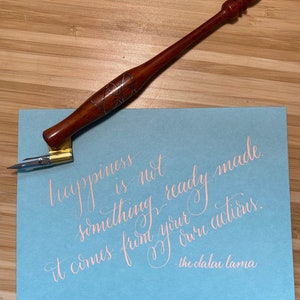 happiness
is not
something ready made.
it comes from your
own actions.
- the dalai lama